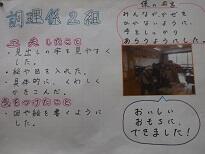 調理係2組
工夫したこと
・見出しの字を見やすく
した。
・絵や図を入れた。
・具体的に、くわしく
かきこんだ。
気をつけたこと
・図や絵を書くように
した。
係の名言
みんながかぜを
ひかないように、
手をしっかり
あらうようにした。
おいしい
おもちに、
できました！